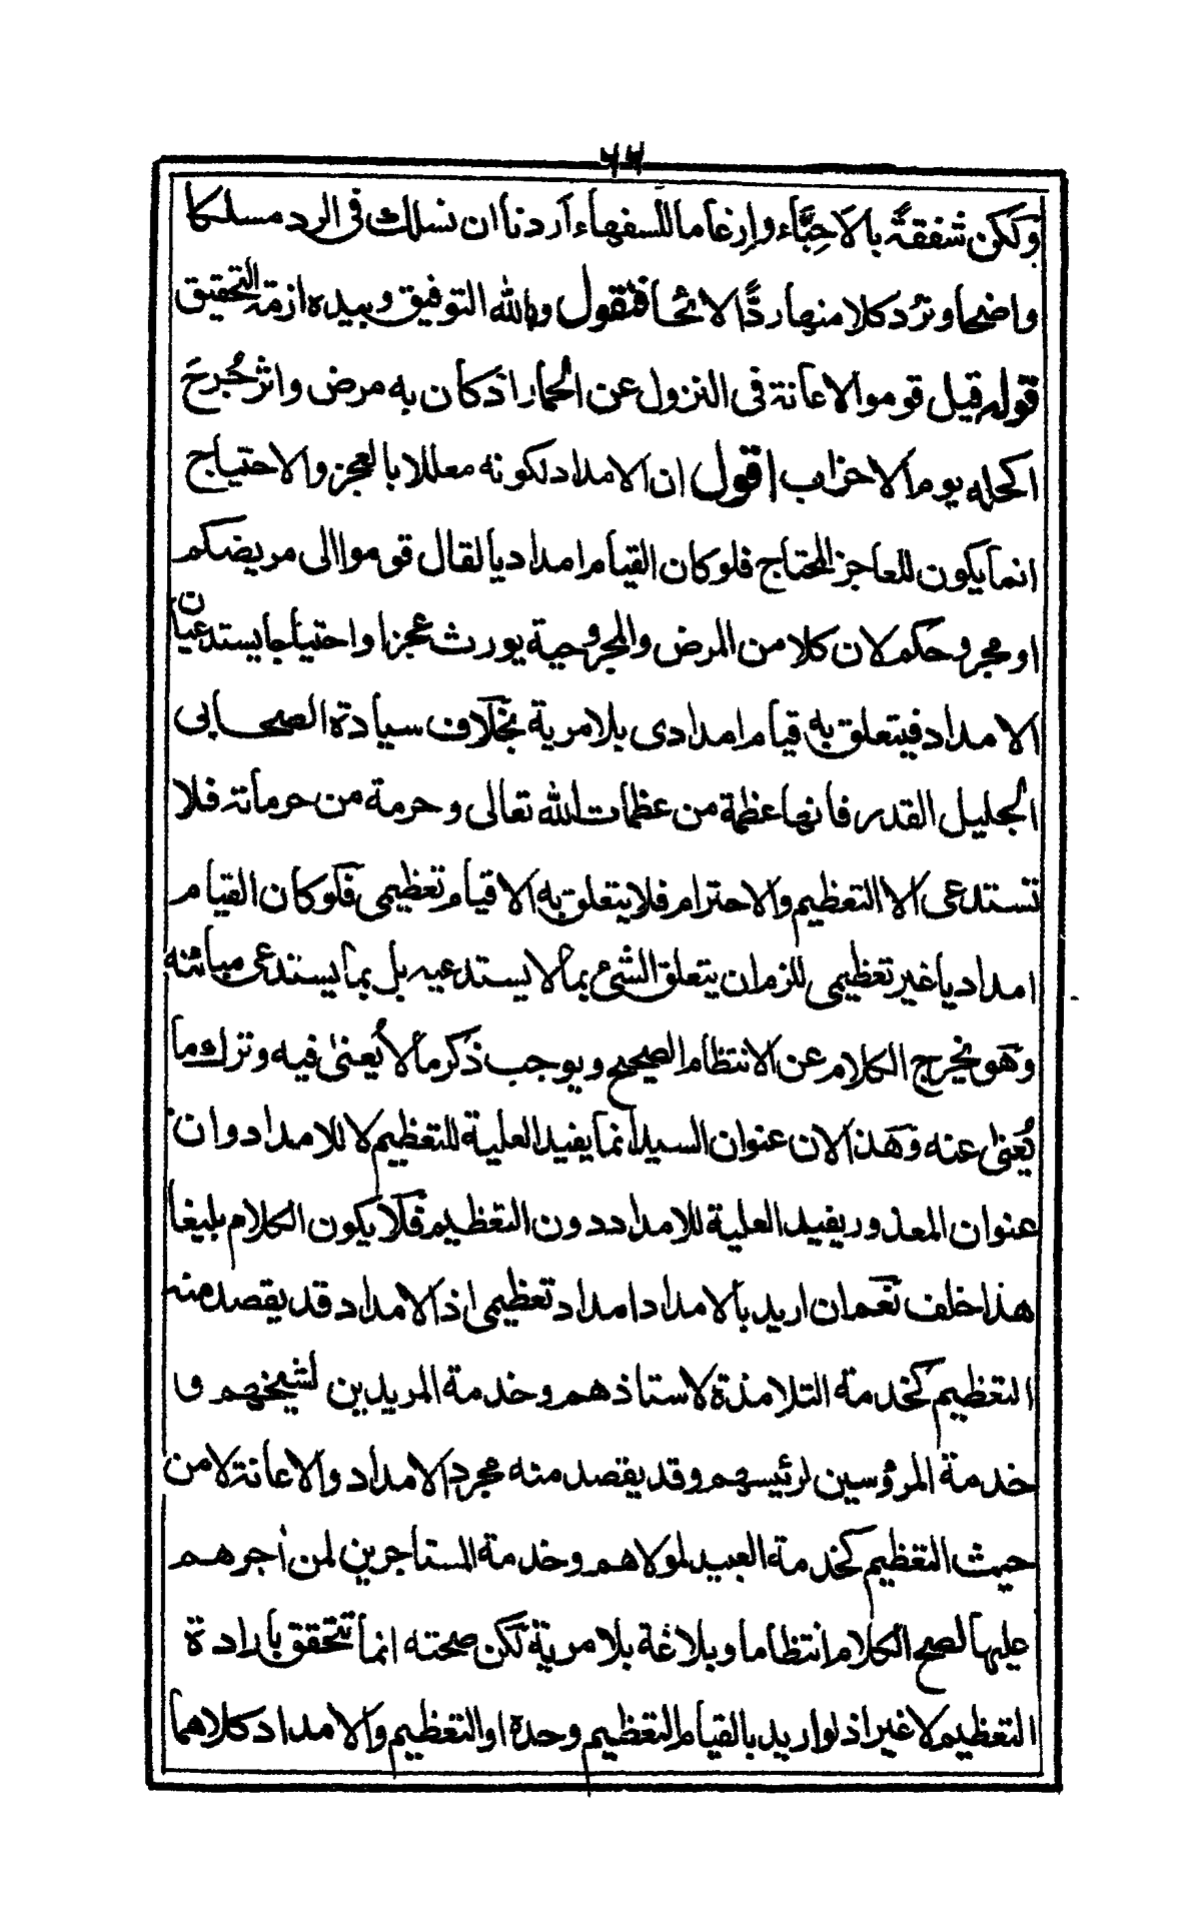 ٦٦
ولكن شفقةً بالاَحِبَّاء وإرغاما للسفهاء اَردنا ان نسلك فى الرد مسلكا
واضحا ونرُد كلا منها ردًّا لائحا فنقول وبالله التوفيق وبيده ازمة التحقيق
قوله قيل قوموا لاعانة فى النزول عن الحمار اذ كان به مرض واثر جُرحَ
اكحله يوم الاحزاب اقول ان الامداد لكونه معللا بالعجز والاحتياج
انما يكون للعاجز المحتاج فلو كان القيام امداديا لقال قوموا الى مريضكم
او مجروحكم لان كلا من المرض والمجروحية يورث عجزا واحتياجا يستدعيان
الامداد فيتعلق به قيام امدادى بلا مرية بخلاف سيادة الصحابى
الجليل القدر فانها عظمة من عظمات الله تعالى وحرمة من حرماته فلا
تستدعى الا التعظيم والاحترام فلا يتعلق به الا قيام تعظيمى فلو كان القيام
امداديا غير تعظيمى للزم ان يتعلق الشئ بما لا يستدعيه بل بما يستدعى مبائنه
وهو يخرج الكلام عن الانتظام الصحيح ويوجب ذكر ما لا يُعنىٰ فيه وترك ما
يُعنىٰ عنه وهذا لان عنوان السيد انما يفيد العلية للتعظيم لا للامداد وان
عنوان المعذور يفيد العلية للامداد دون التعظيم فلا يكون الكلام بليغا
هذا خلف نعم ان اريد بالامداد امداد تعظيمى اذ الامداد قد يقصد منه
التعظيم كخدمة التلامذة لاستاذهم وخدمة المريدين لشيخهم و
خدمة المرؤسين لرئيسهم وقد يقصد منه مجرد الامداد والاعانة لا من
حيث التعظيم كخدمة العبيد لمولاهم وخدمة المستاجرين لمن اٰجرهم
عليها لصح الكلام انتظاما وبلاغة بلا مرية لكن صحته انما تتحقق بارادة
التعظيم لا غير اذ لو اريد بالقيام التعظيم وحده او التعظيم والامداد كلاهما